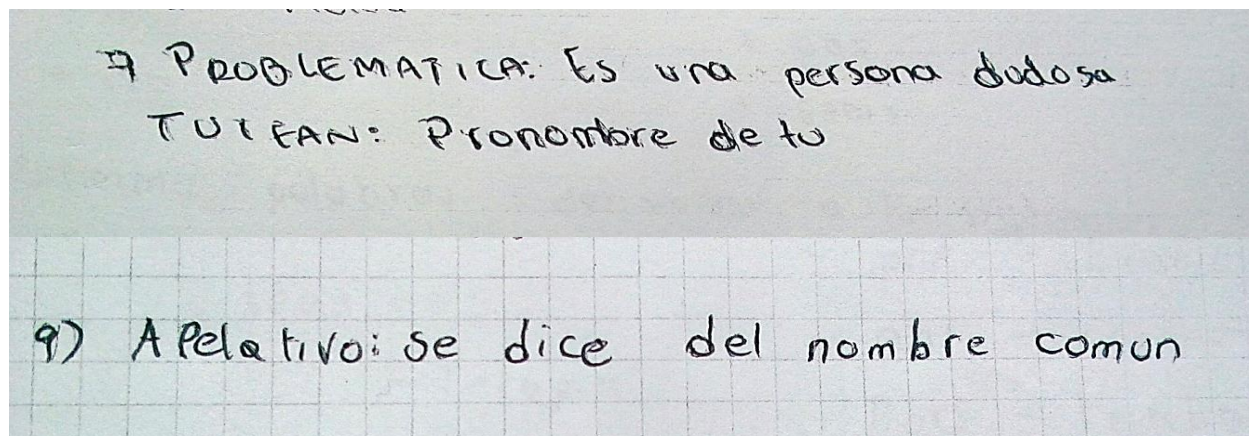 7 PROBLEMATICA: Es una persona dudosa
TUTEAN: Pronombre de tu
9) Apelativo: se dice del nombre comun